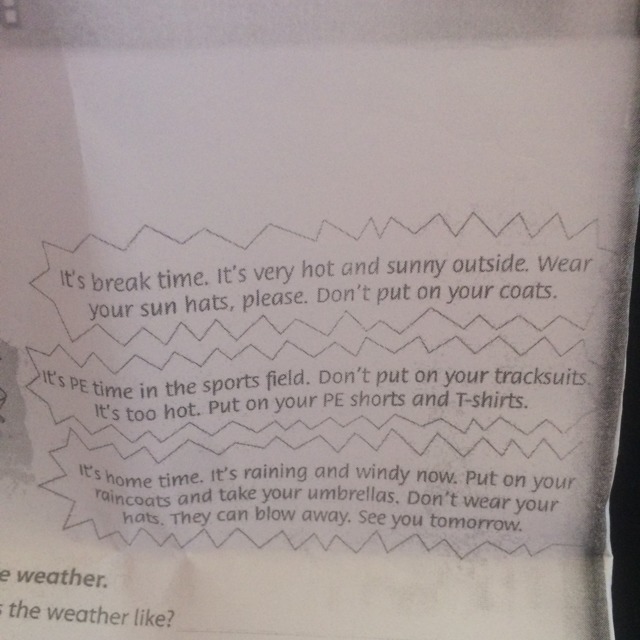 It's break time. It's very hot and sunny outside. Wear
your sun hats, please. Don't put on your coats.
It's PE time in the sports field. Don't put on your tracksuits.
It's too hot. Put on your PE shorts and T-shirts.
It's home time. It's raining and windy now. Put on your
raincoats and take your umbrellas. Don't wear your
hats. They can blow away. See you tomorrow.
weather.
the weather like?